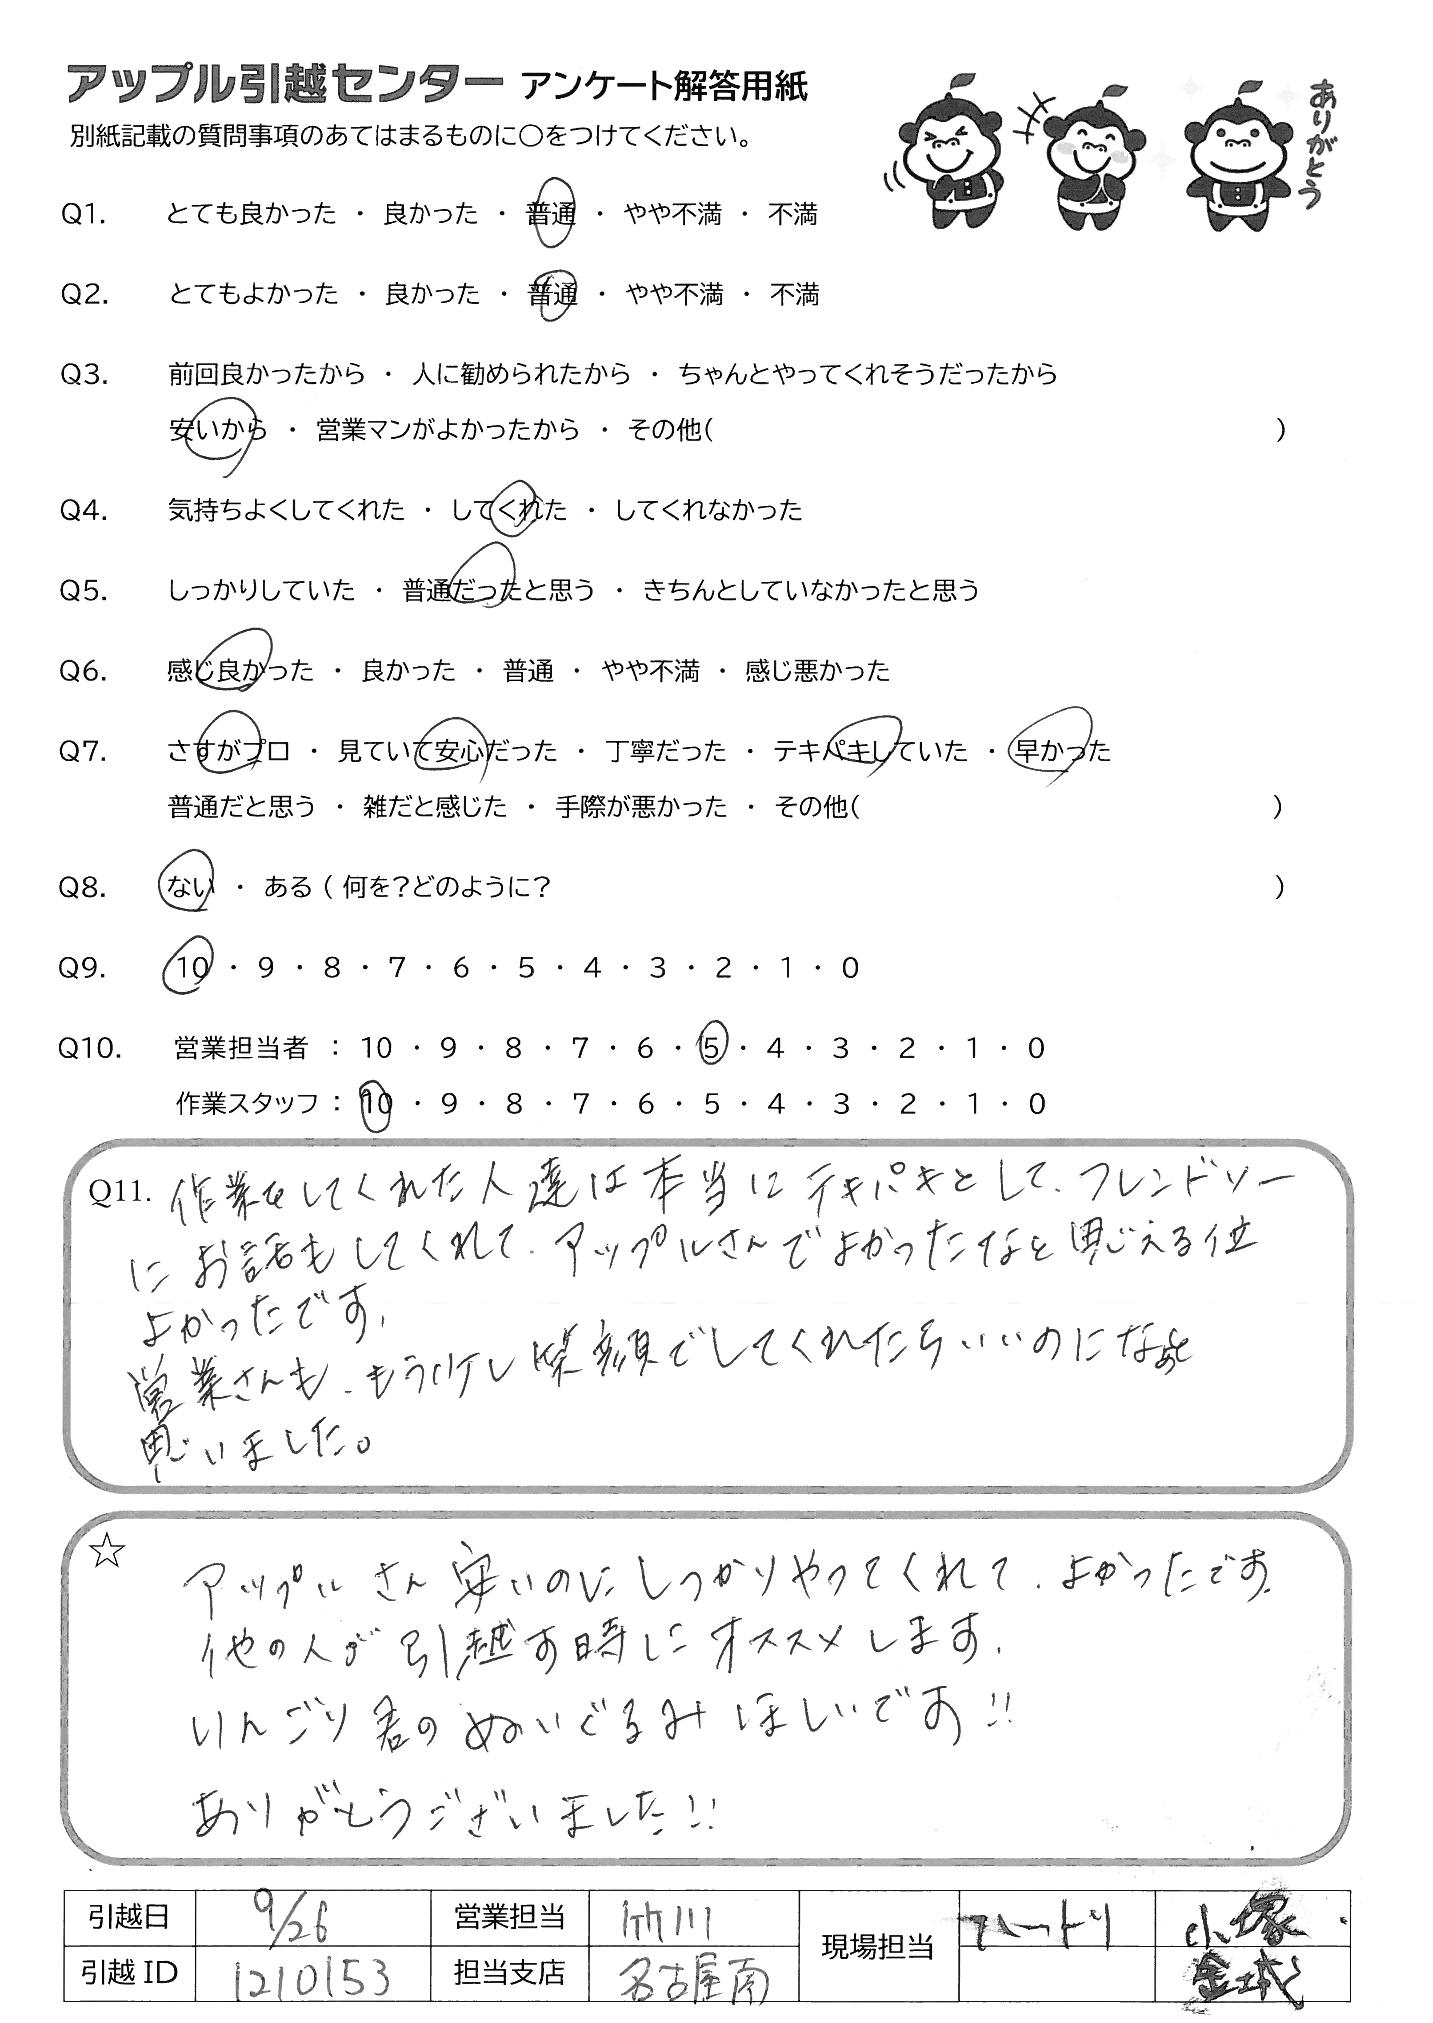 アップル引越センター アンケート解答用紙
ありがとう
別紙記載の質問事項のあてはまるものに〇をつけてください。
Q1. とても良かった ・ 良かった ・ 普通 ・ やや不満 ・ 不満
Q2. とてもよかった ・ 良かった ・ 普通 ・ やや不満 ・ 不満
Q3. 前回良かったから ・ 人に勧められたから ・ ちゃんとやってくれそうだったから
安いから ・ 営業マンがよかったから ・ その他( )
Q4. 気持ちよくしてくれた ・ してくれた ・ してくれなかった
Q5. しっかりしていた ・ 普通だったと思う ・ きちんとしていなかったと思う
Q6. 感じ良かった ・ 良かった ・ 普通 ・ やや不満 ・ 感じ悪かった
Q7. さすがプロ ・ 見ていて安心だった ・ 丁寧だった ・ テキパキしていた ・ 早かった
普通だと思う ・ 雑だと感じた ・ 手際が悪かった ・ その他( )
Q8. ない ・ ある ( 何を?どのように? )
Q9. 10 ・ 9 ・ 8 ・ 7 ・ 6 ・ 5 ・ 4 ・ 3 ・ 2 ・ 1 ・ 0
Q10. 営業担当者 : 10 ・ 9 ・ 8 ・ 7 ・ 6 ・ 5 ・ 4 ・ 3 ・ 2 ・ 1 ・ 0
作業スタッフ : 10 ・ 9 ・ 8 ・ 7 ・ 6 ・ 5 ・ 4 ・ 3 ・ 2 ・ 1 ・ 0
Q11. 作業をしてくれた人達は本当にテキパキとして、フレンドリー
にお話もしてくれて、アップルさんでよかったなと思える位
よかったです。
営業さんも、もう少し笑顔でしてくれたらいいのになぁと
思いました。
☆
アップルさん安いのにしっかりやってくれて、よかったです。
他の人が引越す時にオススメします。
りんごり君のぬいぐるみほしいです!!
ありがとうございました!!
引越日 9/26 営業担当 竹川 現場担当 小塚
引越ID 1210153 担当支店 名古屋南 金城